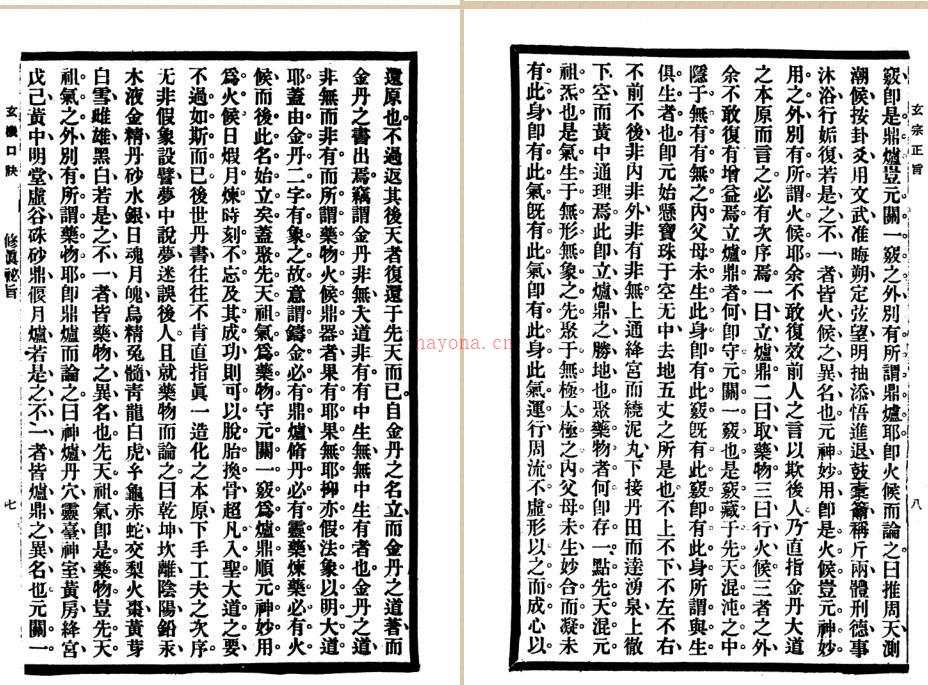 還原也不過返其後天者復還于先天而已自金丹之名立而金丹之道著而
金丹之書出焉竊謂金丹非無大道非有有中生無無中生有者也金丹之道
非無而非有而所謂藥物火候鼎器者果有耶果無耶抑亦假法象以明大道
耶蓋由金丹二字有象之故意謂鑄金必有鼎爐脩丹必有靈藥煉藥必有火
候而後此名始立矣蓋聚先天祖氣爲藥物守元關一竅爲爐鼎順元神妙用
爲火候日煆月煉時刻不忘及其成功則可以脫胎換骨超凡入聖大道之要
不過如斯而已後世丹書往往不肯直指眞一造化之本原下手工夫之次序
無非假象設譬夢中說夢迷誤後人且就藥物而論之曰乾坤坎離陰陽鉛汞
木液金精丹砂水銀日魂月魄烏精兔髓靑龍白虎龜赤蛇交梨火棗黃芽
白雪雌雄黑白若是之不一者皆藥物之異名也先天祖氣卽是藥物豈先天
祖氣之外別有所謂藥物耶卽鼎爐而論之曰神爐丹穴靈臺神室黃房絳宮
戊己黃中明堂虛谷硃砂鼎偃月爐若是之不一者皆爐鼎之異名也元關一
玄機口訣 修眞祕旨 七
玄宗正旨 八
竅卽是鼎爐豈元關一竅之外別有所謂鼎爐耶卽火候而論之曰推周天測
潮候按卦爻用文武准晦朔定弦望明抽添悟進退鼓橐籥稱斤兩體刑德事
沐浴行姤復若是之不一者皆火候之異名也元神妙用卽是火候豈元神妙
用之外別有所謂火候耶余不敢復效前人之言以欺後人乃直指金丹大道
之本原而言之必有次序焉一曰立爐鼎二曰取藥物三曰行火候三者之外
余不敢復有增益焉立爐鼎者何卽守元關一竅也是竅藏于先天混沌之中
隱于無有有無之內父母未生此身卽有此竅旣有此竅卽有此身所謂與生
俱生者也卽元始懸寶珠于空无中去地五丈之所是也不上不下不左不右
不前不後非內非外非有非無上通絳宮而繞泥丸下接丹田而達湧泉上徹
下空而黃中通理焉此卽立爐鼎之勝地也聚藥物者何卽存一點先天混元
祖炁也是氣生于無形無象之先聚于無極太極之內父母未生妙合而凝未
有此身卽有此氣旣有此氣卽有此身此氣運行周流不虛形以之而成心以
hayona.cn